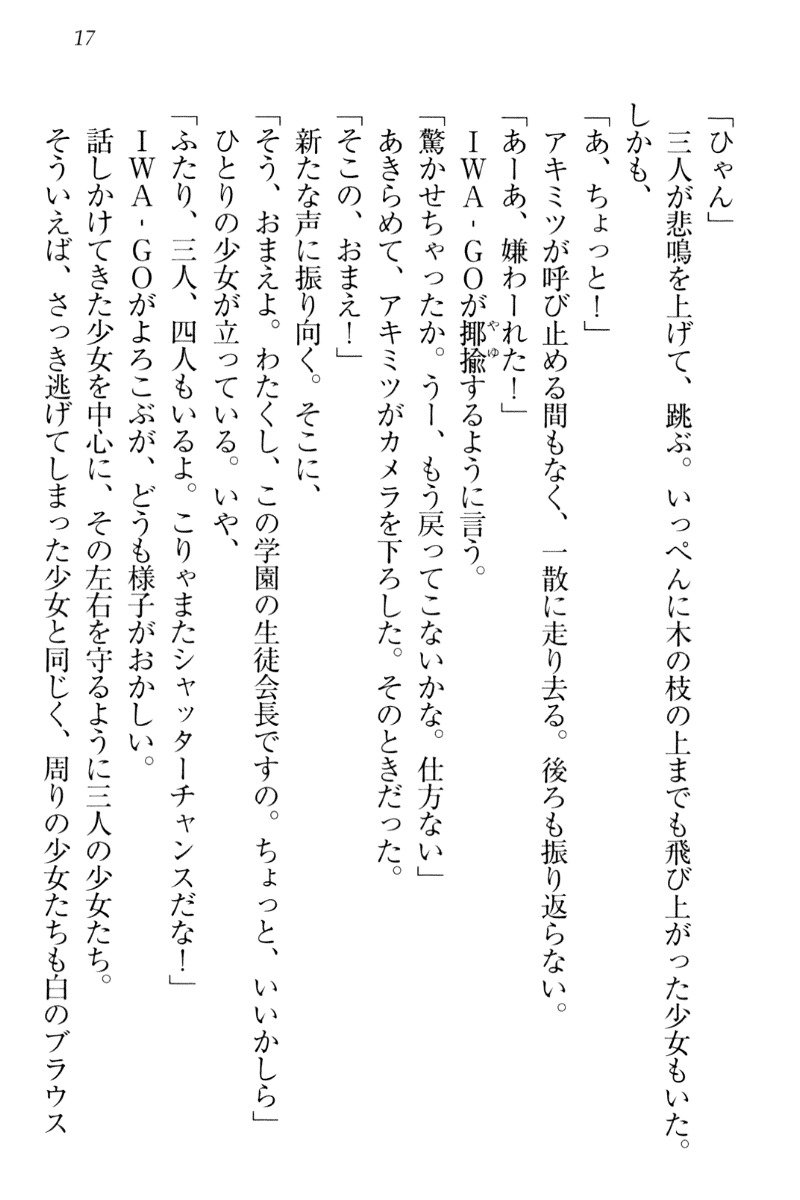 17
「ひゃん」
三人が悲鳴を上げて、跳ぶ。いっぺんに木の枝の上までも飛び上がった少女もいた。
しかも、
「あ、ちょっと！」
アキミツが呼び止める間もなく、一散に走り去る。後ろも振り返らない。
「あーあ、嫌わーれた！」
ＩＷＡ‐ＧＯが揶揄するように言う。
やゆ
「驚かせちゃったか。うー、もう戻ってこないかな。仕方ない」
あきらめて、アキミツがカメラを下ろした。そのときだった。
「そこの、おまえ！」
新たな声に振り向く。そこに、
「そう、おまえよ。わたくし、この学園の生徒会長ですの。ちょっと、いいかしら」
ひとりの少女が立っている。いや、
「ふたり、三人、四人もいるよ。こりゃまたシャッターチャンスだな！」
ＩＷＡ‐ＧＯがよろこぶが、どうも様子がおかしい。
話しかけてきた少女を中心に、その左右を守るように三人の少女たち。
そういえば、さっき逃げてしまった少女と同じく、周りの少女たちも白のブラウス